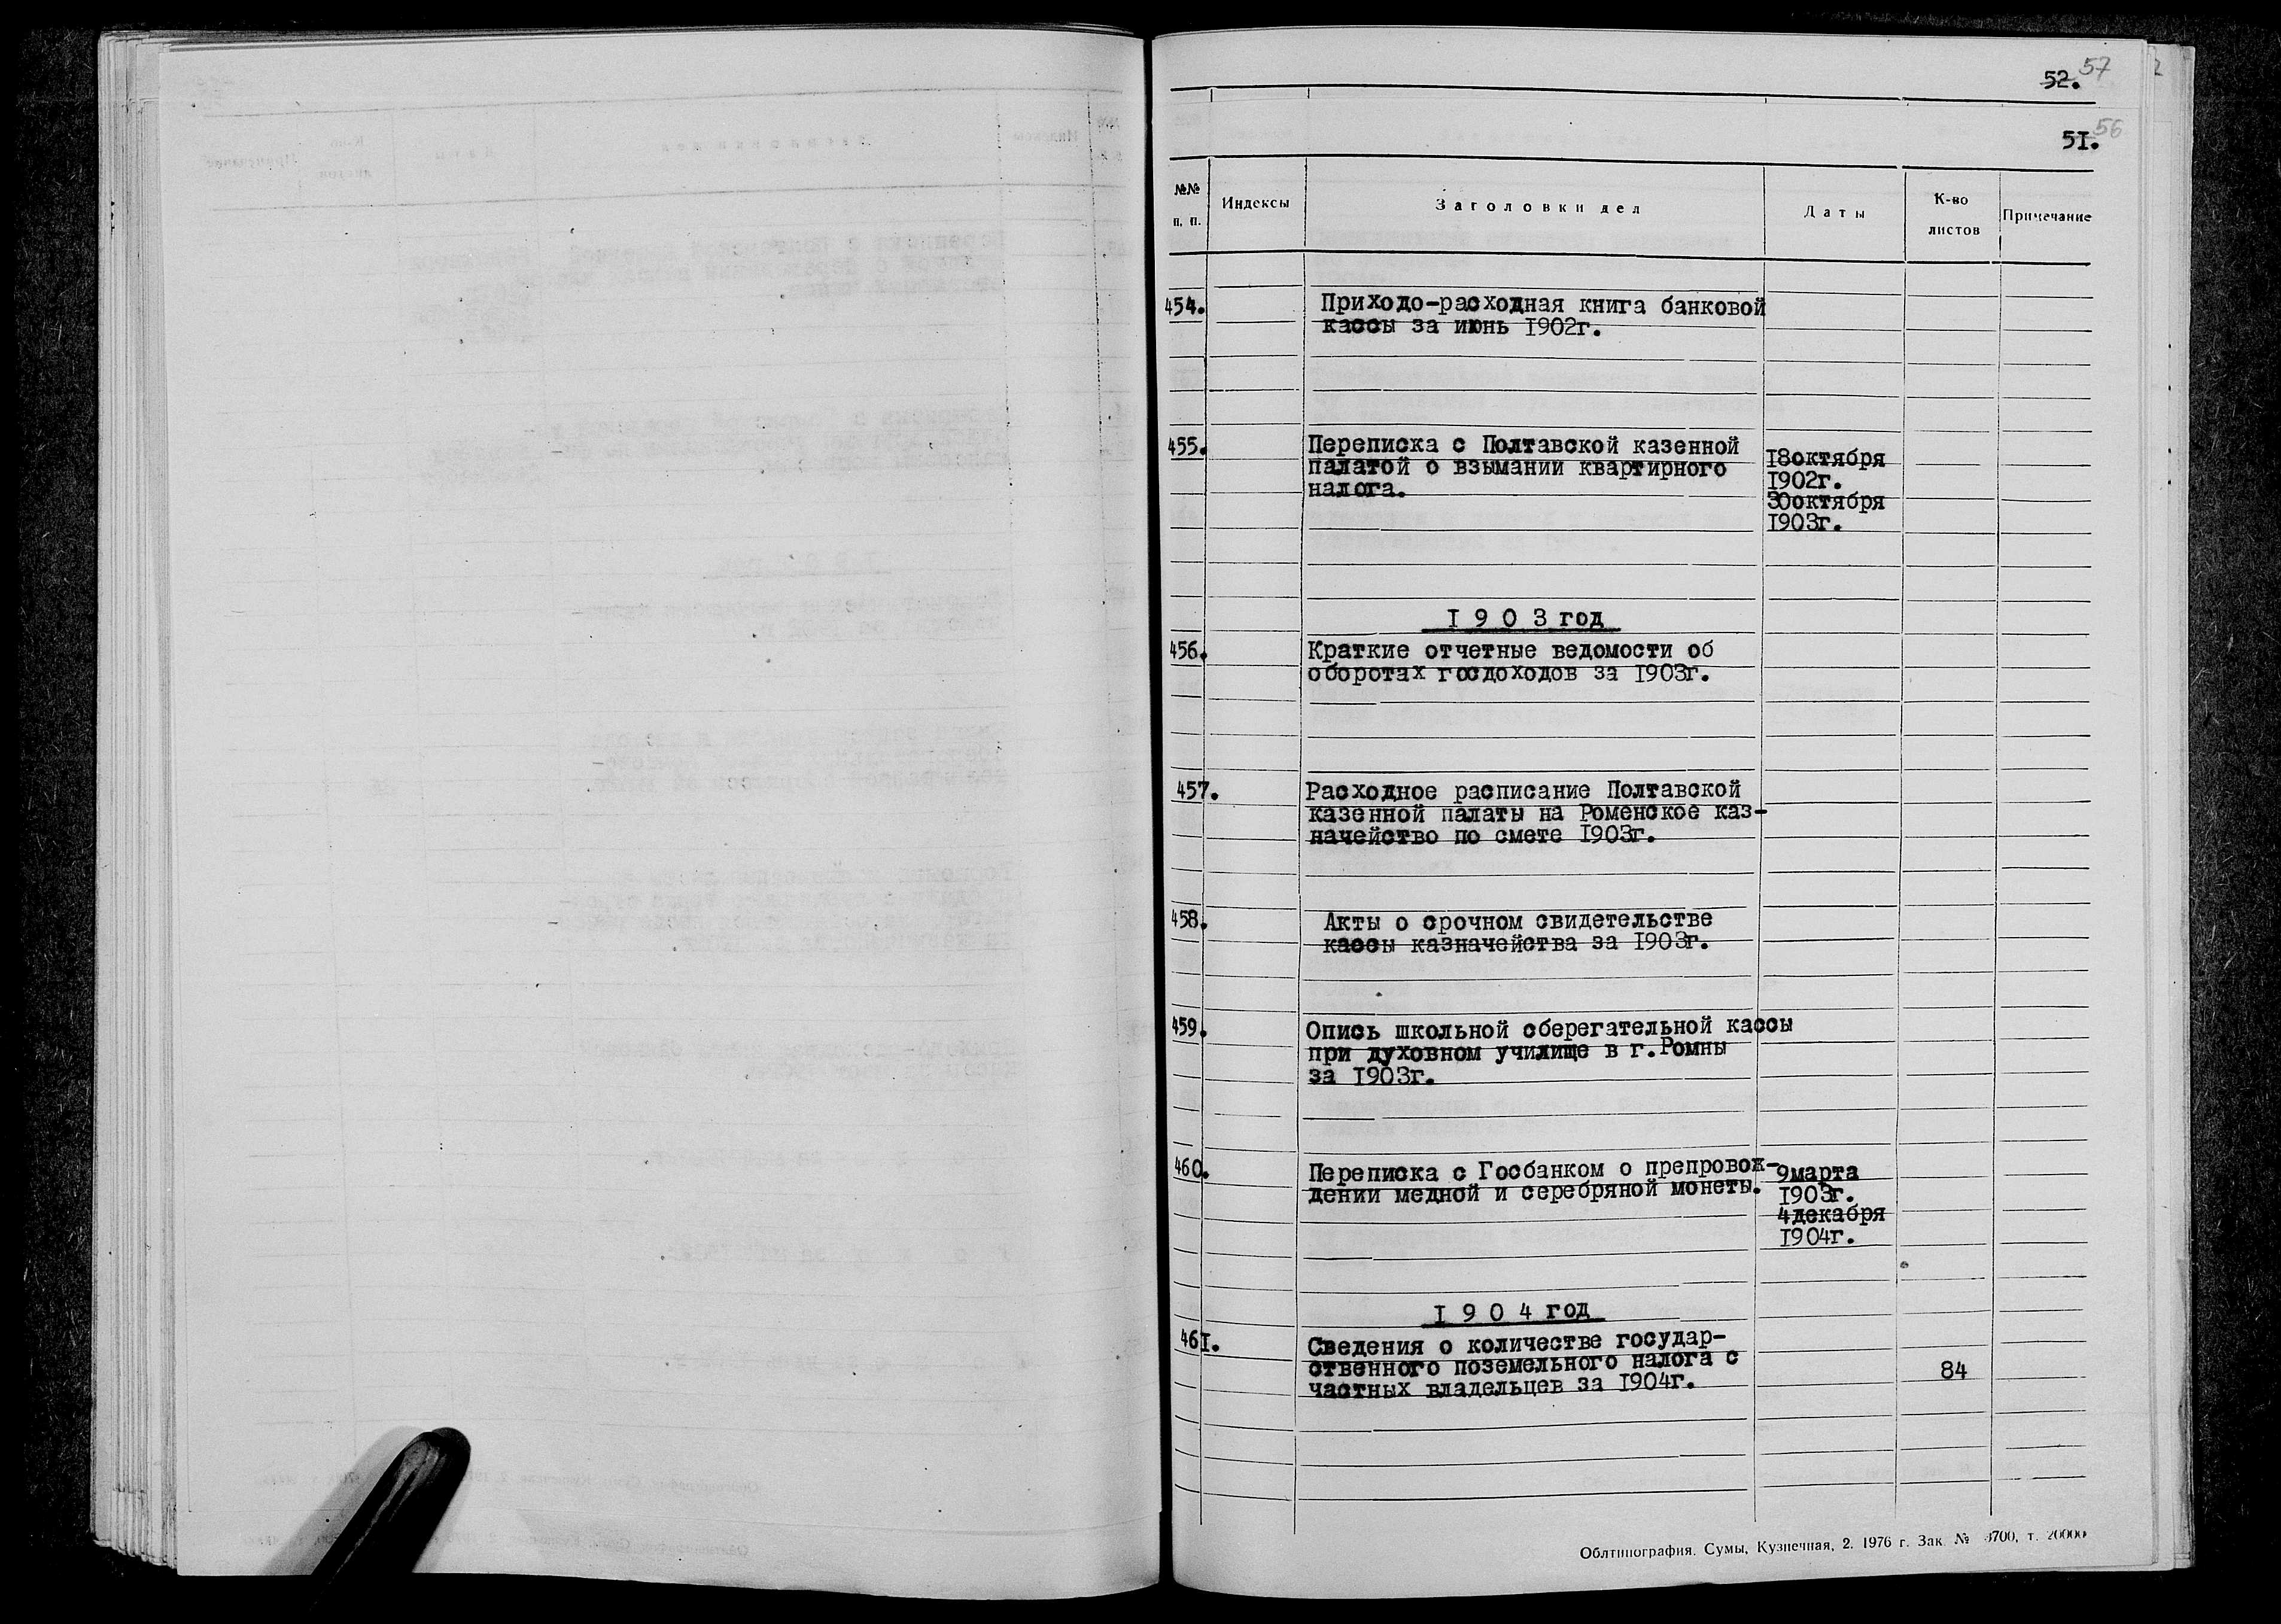 52. 57
51. 56
№№ п. п. Индексы Заголовки дел Даты К-во листов Примечание
454. Приходо-расходная книга банковой
кассы за июнь 1902г.
455. Переписка с Полтавской казенной
палатой о взымании квартирного
налога.
18октября
1902г.
30октября
1903г.
1903 год
456. Краткие отчетные ведомости об
оборотах госдоходов за 1903г.
457. Расходное расписание Полтавской
казенной палаты на Роменское каз-
начейство по смете 1903г.
458. Акты о срочном свидетельстве
кассы казначейства за 1903г.
459. Опись школьной сберегательной кассы
при духовном училище в г.Ромны
за 1903г.
460. Переписка с Госбанком о препровож-
дении медной и серебряной монеты.
9марта
1903г.
4декабря
1904г.
1904 год
461. Сведения о количестве государ-
ственного поземельного налога с
частных владельцев за 1904г.
84
Облтипография. Сумы, Кузнечная, 2. 1976 г. Зак. № 3700, т. 20000